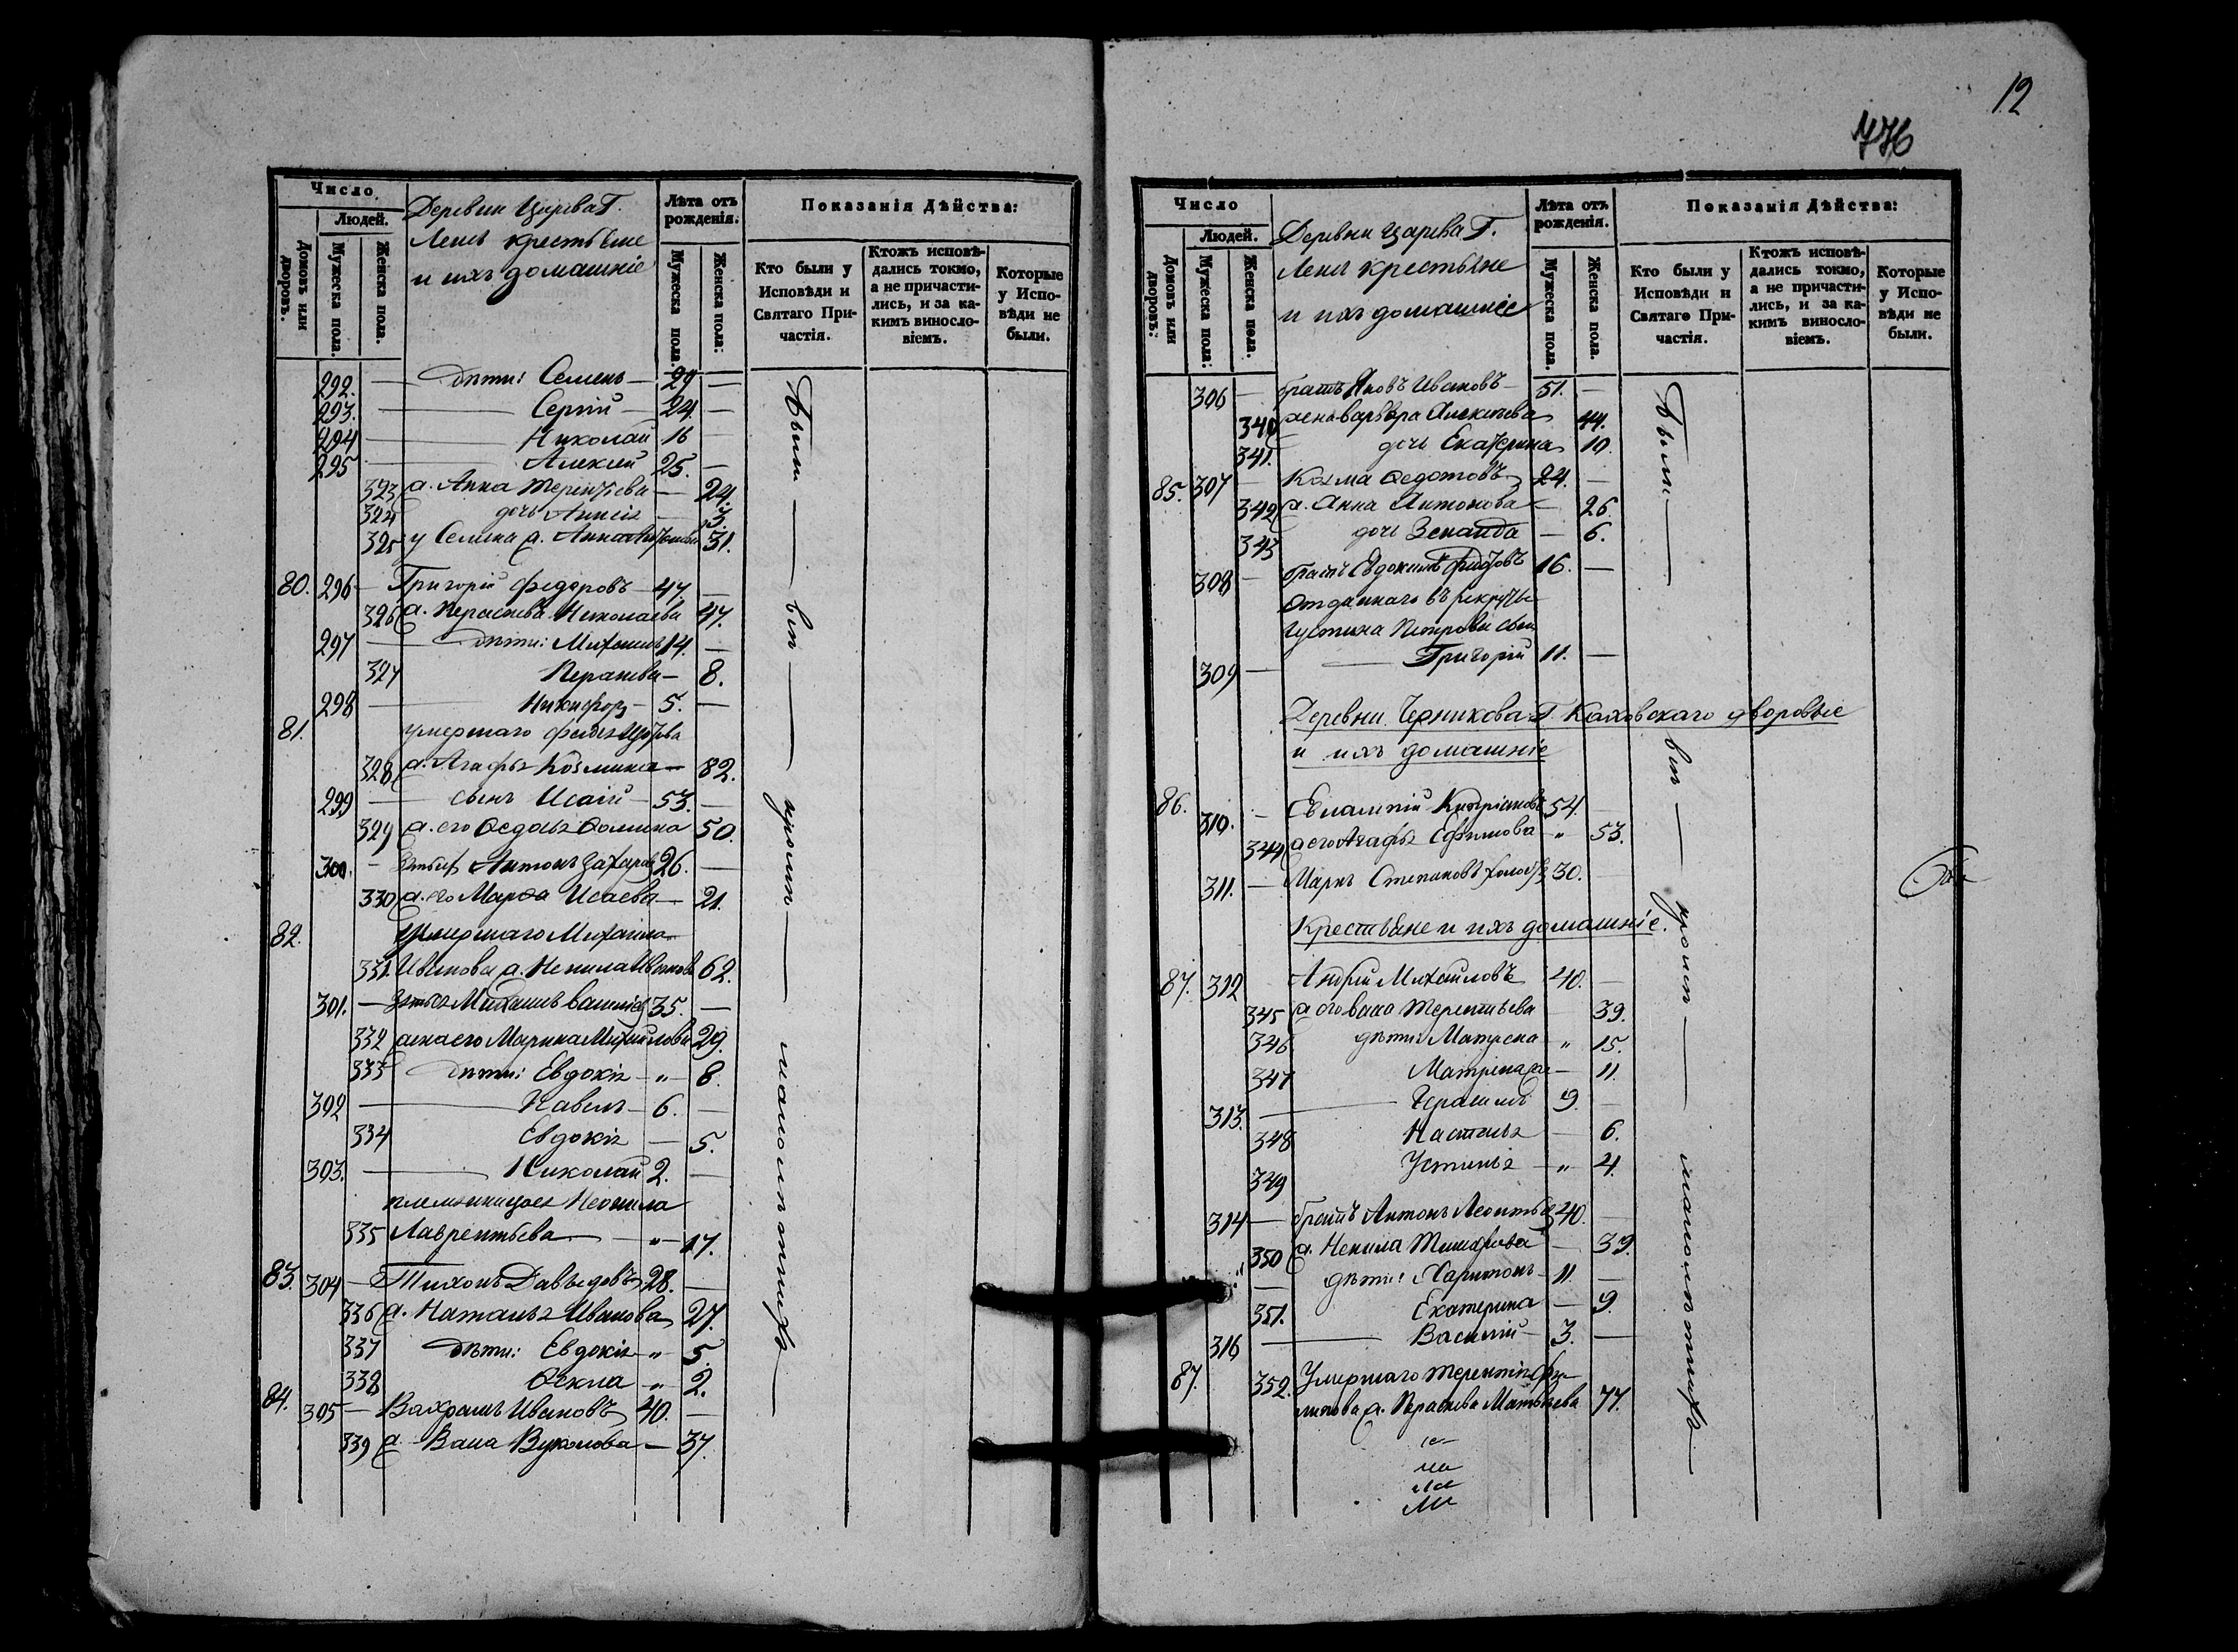 12
776
Число
Людей.
Домовъ или дворовъ.
Мужеска пола.
Женска пола.
Деревни Царева Г.
крестьяне
и ихъ домашніе
Лѣта отъ рожденія.
Мужеска пола.
Женска пола:
Показанія Дѣйства:
Кто были у Исповѣди и Святаго Причастія.
Ктожъ исповѣдались токмо, а не причастились, и за какимъ винословіемъ.
Которые у Исповѣди не были.
292. — дѣти: Семенъ — 29 —
293. — Сергій — 24. —
294 — Николай 16 —
295 — Алексій 25. —
323 ж. Анна Терентьева — 24.
324 дочь — 3.
325 у Семена ж. Анна 31.
80. 296 — Григорій Федоровъ — 47. —
326 ж. Параскева Николаева 47.
297 — дѣти: Михаилъ 14. —
327 Параскева — 8.
298 — Никифоръ — 5. —
81. умершаго
328 ж. Агафья Козмина — 82.
299 — сынъ Исаій — 53. —
329 ж. его Ѳедосья Ѳомина 50.
300. — зять Антонъ Захаровъ 26. —
330 ж. его Марѳа Исаева — 21.
82. Умершаго Михаила
331. Иванова ж. Ненила Иванова 62.
301. — зять Михаилъ Васильевъ 35. —
332 жена его Марина Михаилова 29.
333 дѣти: Евдокія — „ — 8.
302 — Павелъ — 6. —
334 Евдокія — 5.
303. — Николай 2. —
племянница Неонила
335 Лаврентьева — „ — 17.
83. 304 — Тихонъ Давыдовъ 28. —
336 ж. Наталья Иванова 27.
337 дѣти: Евдокія — „ 5.
338 Ѳекла — „ 2.
84. 305 — Ивановъ 40. —
339 ж. Васса Вуколова — 37.
Были — вси — кромѣ — малолѣтнихъ —
Число
Людей.
Домовъ или дворовъ:
Мужеска пола:
Женска пола.
Деревни Царева Г.
крестьяне
и ихъ домашніе
Лѣта отъ рожденія.
Мужеска пола.
Женска пола.
Показанія Дѣйства:
Кто были у Исповѣди и Святаго Причастія.
Ктожъ исповѣдались токмо, а не причастились, и за какимъ винословіемъ.
Которые у Исповѣди не были.
306 — братъ Яковъ Ивановъ — 51. —
340 жена Варвара Алексѣева 44.
341. дочь Екатерина 10.
85. 307 — Козма Ѳедотовъ 24. —
342 ж. Анна Антонова — 26.
343 дочь Зенаида — 6.
308 — братъ Евдокимъ 16. —
Отданнаго въ рекруты
Устина Петрова сынъ
309 — Григорій 11. —
Деревни Черникова Г. Каховскаго дворовые
и ихъ домашніе
86. 310. — Евлампій Кипріановъ 54.
344 ж его Агафья Ефимова — „ 53.
311. — Маркъ Степановъ холостъ 30. —
Крестьяне и ихъ домашніе.
87. 312 Андрей Михаиловъ 40. —
345 ж его Васса Терентьева 39.
346 дѣти: Матрена „ 15.
347 Матрена — 11.
313. — Герасимъ 9. —
348 Настасья — 6.
349 Устинья — „ 4.
314 — братъ Антонъ Леонтьевъ 40. —
350 ж. Ненила Тимофеева — 39.
„ — дѣти: Харитонъ — 11. —
351. Екатерина — 9.
316 — Василій — 3. —
87. 352. Умершаго Терентія
ж. Параскева Матвѣева 77.
Были — вси — кромѣ — малолѣтнихъ —